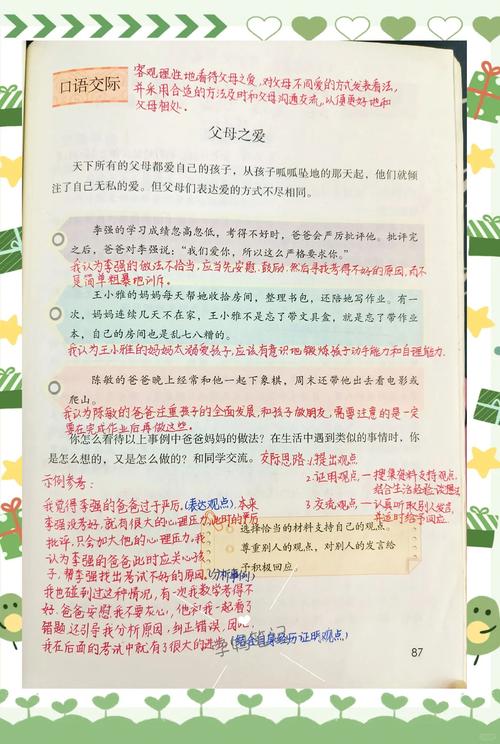 口语交际
客观理性地看待父母之爱,对父母不同爱的方式发表看法,
并采用合适的方法及时和父母沟通交流,从而更好地和
父母相处。
父母之爱
天下所有的父母都爱自己的孩子,从孩子呱呱坠地的那天起,他们就倾
注了自己无私的爱。但父母们表达爱的方式不尽相同。
李强的学习成绩忽高忽低,考得不好时,爸爸会严厉批评他。批评完
之后,爸爸对李强说:“我们爱你,所以这么严格要求你。”
我认为李强的做法不恰当,应当先安慰、鼓励,然后寻找考得不好的原因,而不
是简单粗暴地训斥。
王小雅的妈妈每天帮她收拾房间,整理书包,还陪她写作业。有一
次,妈妈连续几天不在家,王小雅不是忘了带文具盒,就是忘了带作业
本,自己的房间也是乱七八糟的。
我认为王小雅的妈妈太溺爱孩子,应该有意识地锻炼孩子动手能力和自理能力.
陈敏的爸爸晚上经常和他一起下象棋,周末还带他出去看电影或
爬山。
我认为陈敏的爸爸注重孩子的全面发展,和孩子做朋友,需要注意的是一定
要在完成作业后再做这些.
你怎么看待以上事例中爸爸妈妈的做法?在生活中遇到类似的事情时,你
是怎么想的,又是怎么做的?和同学交流。
交际思路:1.提出观点
2.证明观点—搜集资料支持观点,
结合生活经验谈想法
3.交流观点—认真听取别人发言,
并适时给予回应。
示例参考:
我觉得李强的爸爸过于严厉,(表达观点)本来
李强没考好,就有很大的心理压力,此时的严厉
批评,只会加大他的心理压力,我
认为李强的爸爸此时应关心孩
子,帮李强找出考试不好的原因.(分析事例)
我也碰到过这种情况,有一次我数学考得不
好,爸爸安慰我不要灰心,他和我一起看了
错题,还引导我分析原因,纠正错误,因此
我在后面的考试中就有了很大的进步.(结合自身经历证明观点)
选择恰当的材料支持自己的观点。
尊重别人的观点,对别人的发言给
予积极回应。
87